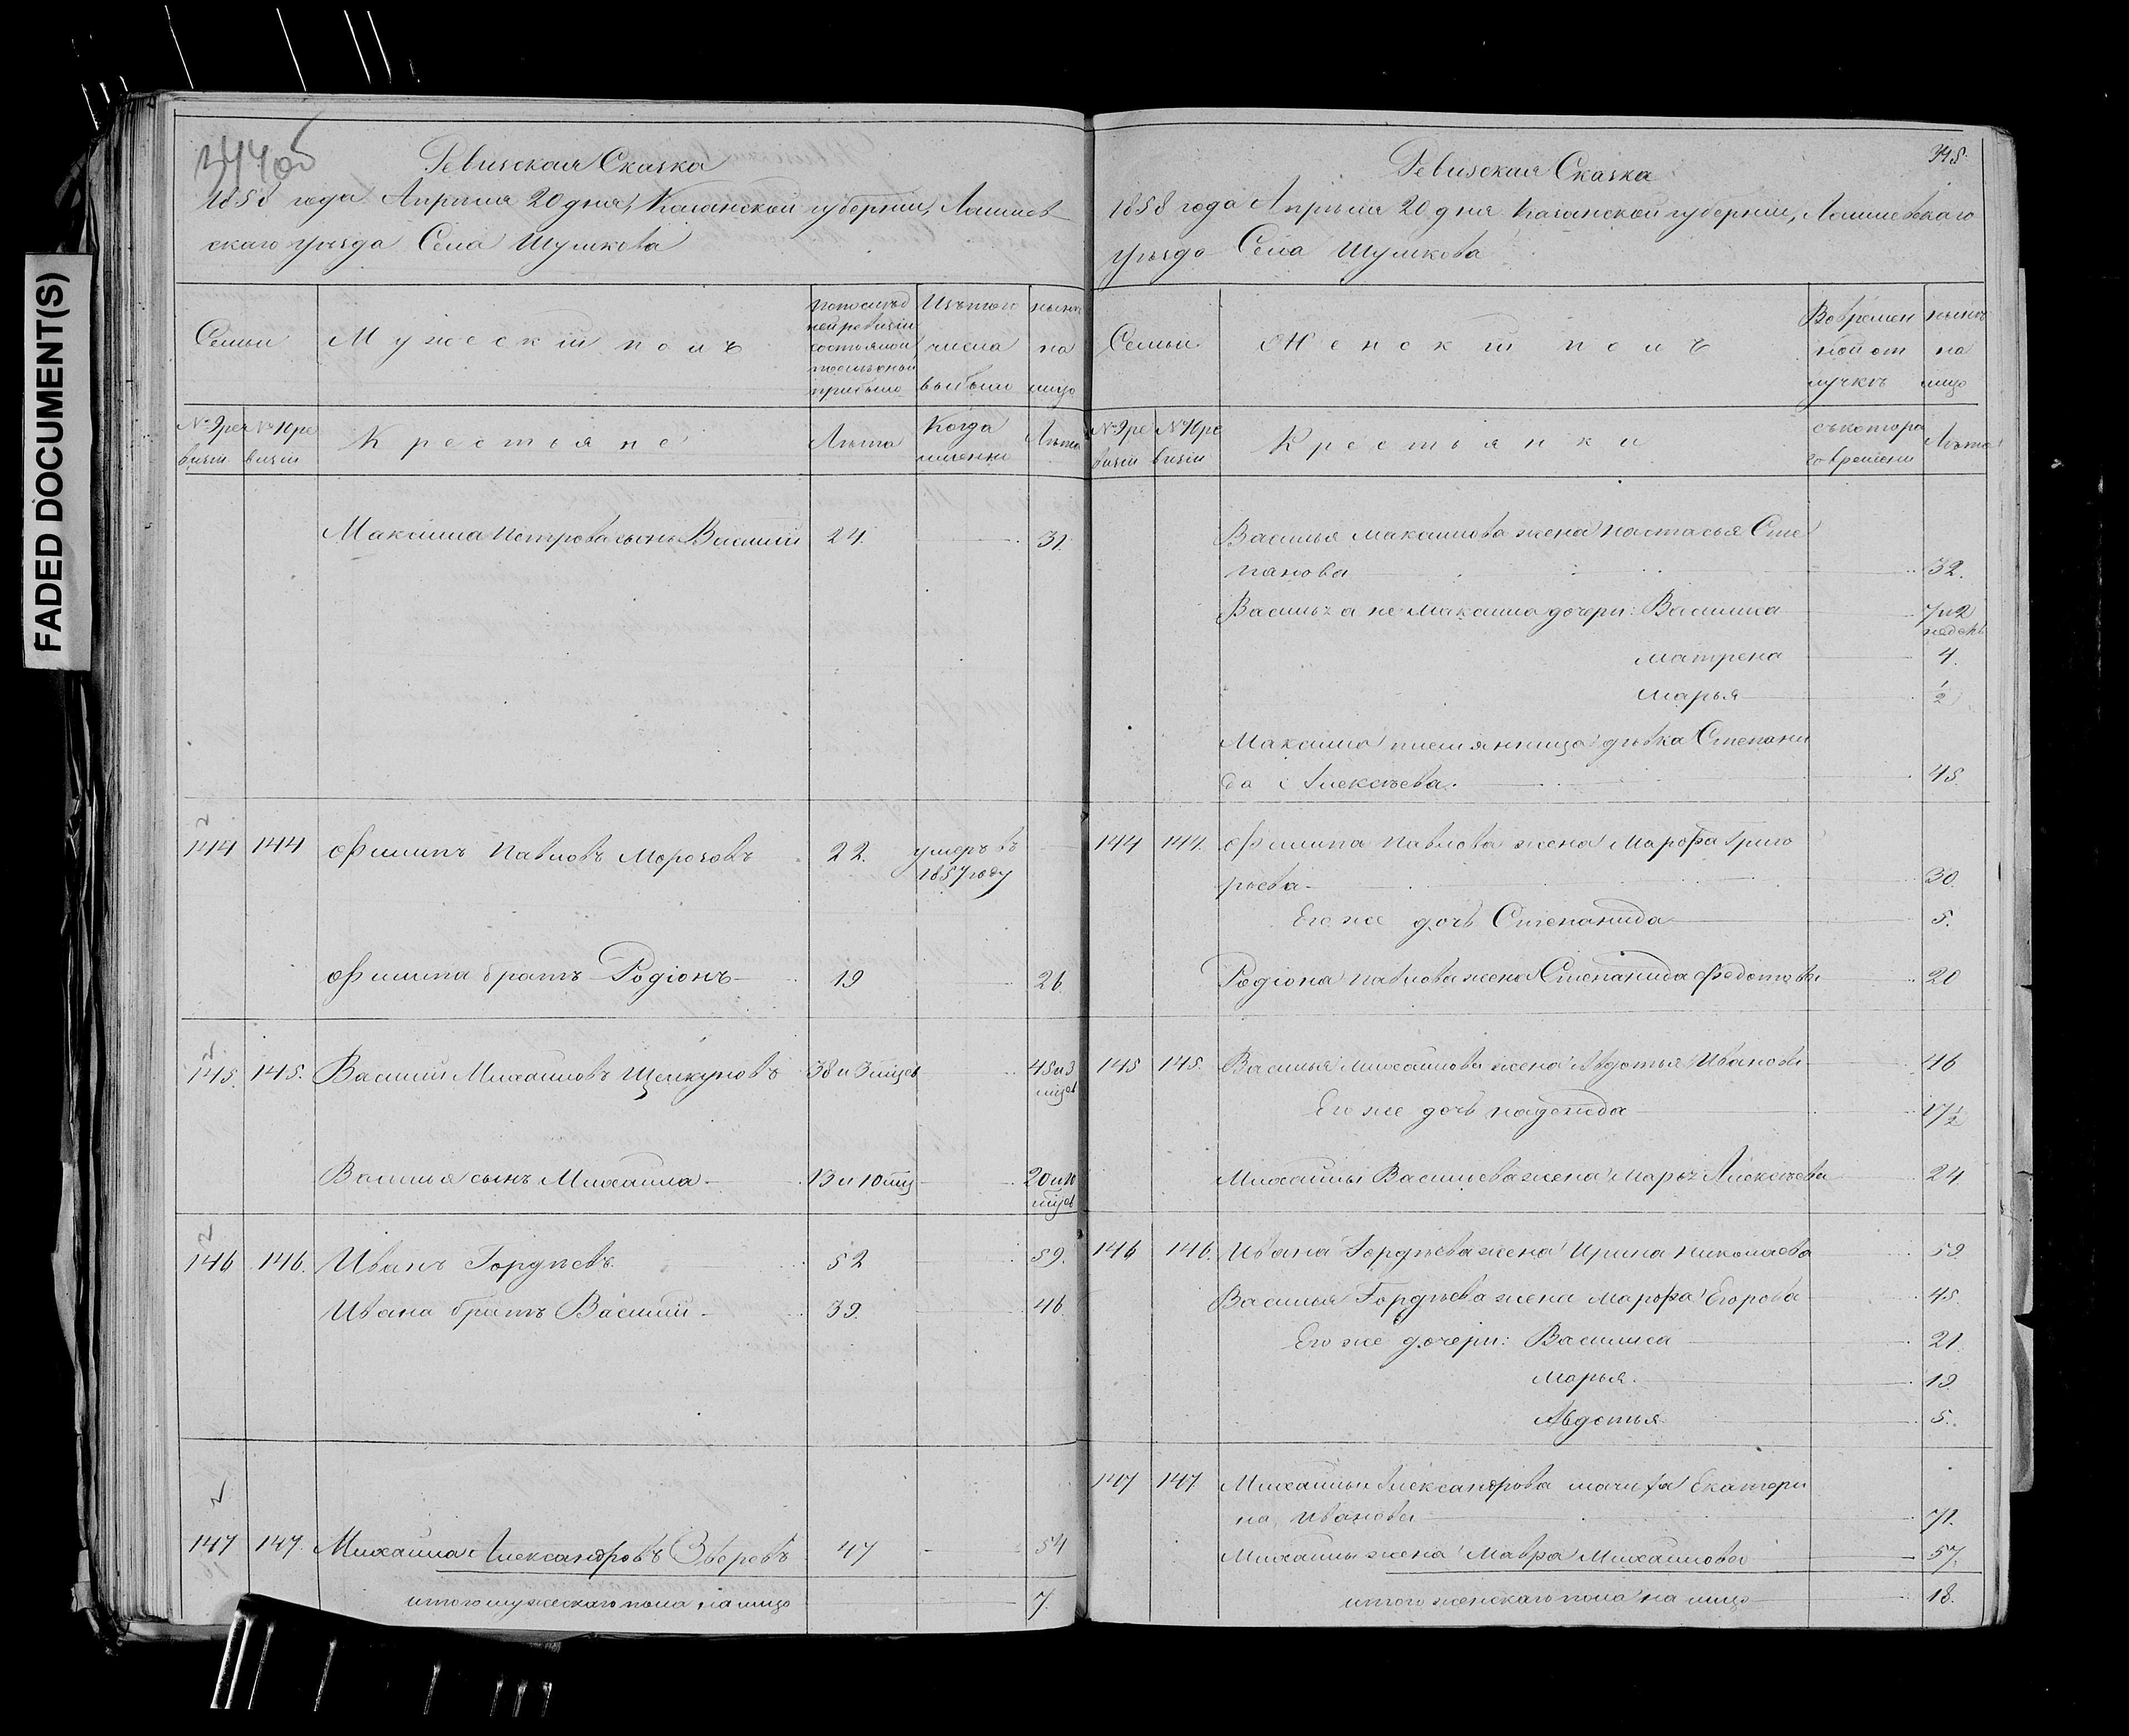 FADED DOCUMENT(S)
344об
Ревизская Сказка
1858 года Апрѣля 20 дня, Казанской губерніи, Лаишев
скаго уѣзда Села Шумкова
Семьи
Мужескій полъ
По послѣд
ней ревизіи
состояло и
послѣ оной
прибыло
Изъ того
числа
выбыло
нынѣ
на
лицо
№ 9 ре
визіи
№ 10 ре
визіи
Крестьяне
Лѣта
Когда
именно
Лѣта
Максима Петрова сынъ Василій 24. 31.
144 144 Филипъ Павловъ Морозовъ 22. умеръ въ
1857 году
Филипа братъ Родіонъ 19 26.
145. 145. Василий Михайловъ Щелкуновъ 38 и 3 мѣсец 45 и 3
мѣсец
Василья сынъ Михаила 13 и 10 мѣц 20 и 10
мѣсец
146 146. Иванъ Гордѣевъ 52 59.
Ивана братъ Василий 39. 46.
147 147. Михаила Александровъ Зверевъ 47 54
итого мужескаго пола на лицо 7.
345.
Ревизская Сказка
1858 года Апрѣля 20 дня Казанской губерніи, Лаишевскаго
уѣзда Села Шумкова
Семьи
Женскій полъ
Во времен
ной от
лучкѣ
нынѣ
на
лицо
№ 9 ре
визіи
№ 10 ре
визіи
Крестьянки
съ котора
го времени
Лѣта
Василья Максимова жена Настасья Сте
панова 32.
Васильа не Максима дочери: Василиса 7 и 2
недѣл
Матрена 4.
Марья 1/2
Максима племянница дѣвка Степани
да Алексѣева. 45.
144 144. Филипа Павлова жена Марфа Григо
рьева 30.
Его же дочь Степанида 5.
Родіона Павлова жена Степанида Федотова 20
145 145. Василья Михайлова жена Авдотья Иванова 46
Его же дочь Надежда 17 1/2
Михайлы Васильева жена Марья Алексѣева 24.
146 146. Ивана Гордѣева жена Ирина Николаева 59.
Василья Гордѣева жена Марфа Егорова 45.
Его же дочери: Василиса 21.
Марья. 19.
Авдотья 5.
147 147. Михайлы Александрова мачиха Екатери
на Иванова 71.
Михайлы жена Мавра Михайлова 57.
итого женскаго пола на лицо 18.